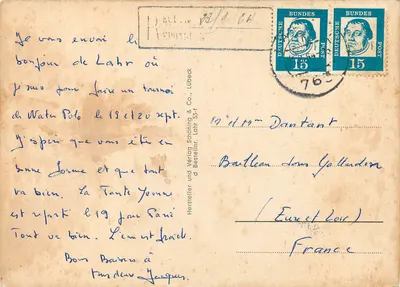 Je vous envoi le
bonjour de Lahr où
je suis pour faire un tournoi
de Water Polo le 19 et 20 sept.
J'espère que vous êtes en
bonne forme et que tout
va bien. La Tante Yvonne
est reparti le 19 pour Paris
Tout va bien. L'eau est froide.
Bons Baisers à
tous deux Jacques
Hersteller und Verlag Schöning & Co., Lübeck
Lahr
DEUTSCHE BUNDES POST
15
DEUTSCHE BUNDES POST
15
763
M et Mme Dantant
Bailleau sous Gallardon
(Eure et Loir)
France